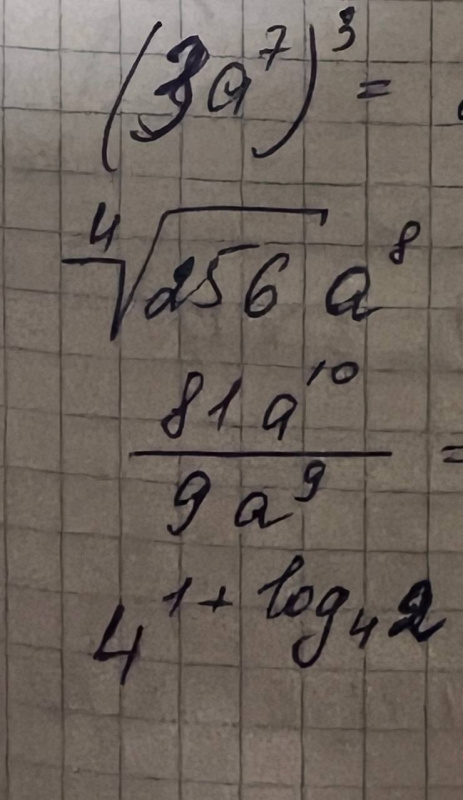 (3a⁷)³ =
⁴√256 a⁸
81a¹⁰ / 9a⁹ =
4^(1+log₄2)